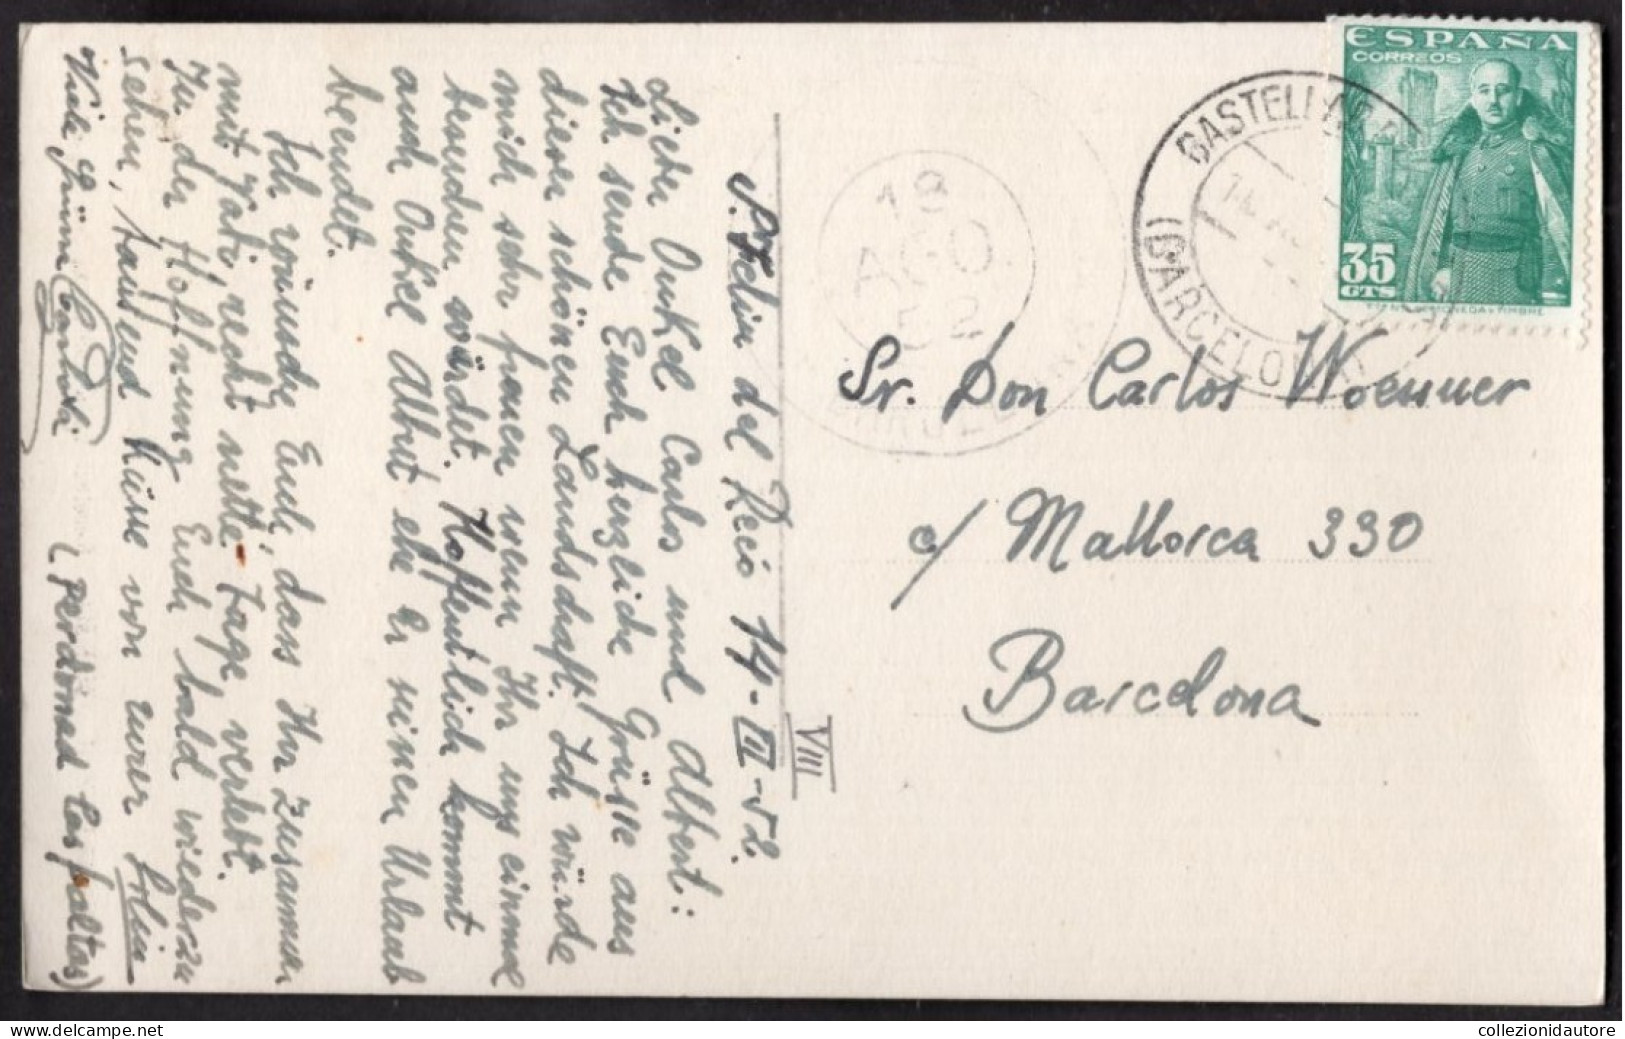 S. Feliu del Recó 14-VII-52.
Lieber Onkel Carlos und Albert:
Ich sende Euch herzliche Grüsse aus
dieser schönen Landschaft. Ich würde
mich sehr freuen wenn Ihr uns einmal
besuchen würdet. Hoffentlich kommt
auch Onkel Albert ehe Er seinen Urlaub
beendet.
Ich wünsche Euch, dass Ihr Zusammen
mit Vati recht nette Tage verlebt.
In der Hoffnung Euch bald wiederzu
sehen, tausend Küsse von eurer
Viele Grüsse (perdonad las faltas)
VIII
ESPAÑA
CORREOS
35
CTS
CASTELL
(BARCELONA)
18
AGO
52
Sr. Don Carlos Woessner
c/ Mallorca 330
Barcelona
collezionidautore